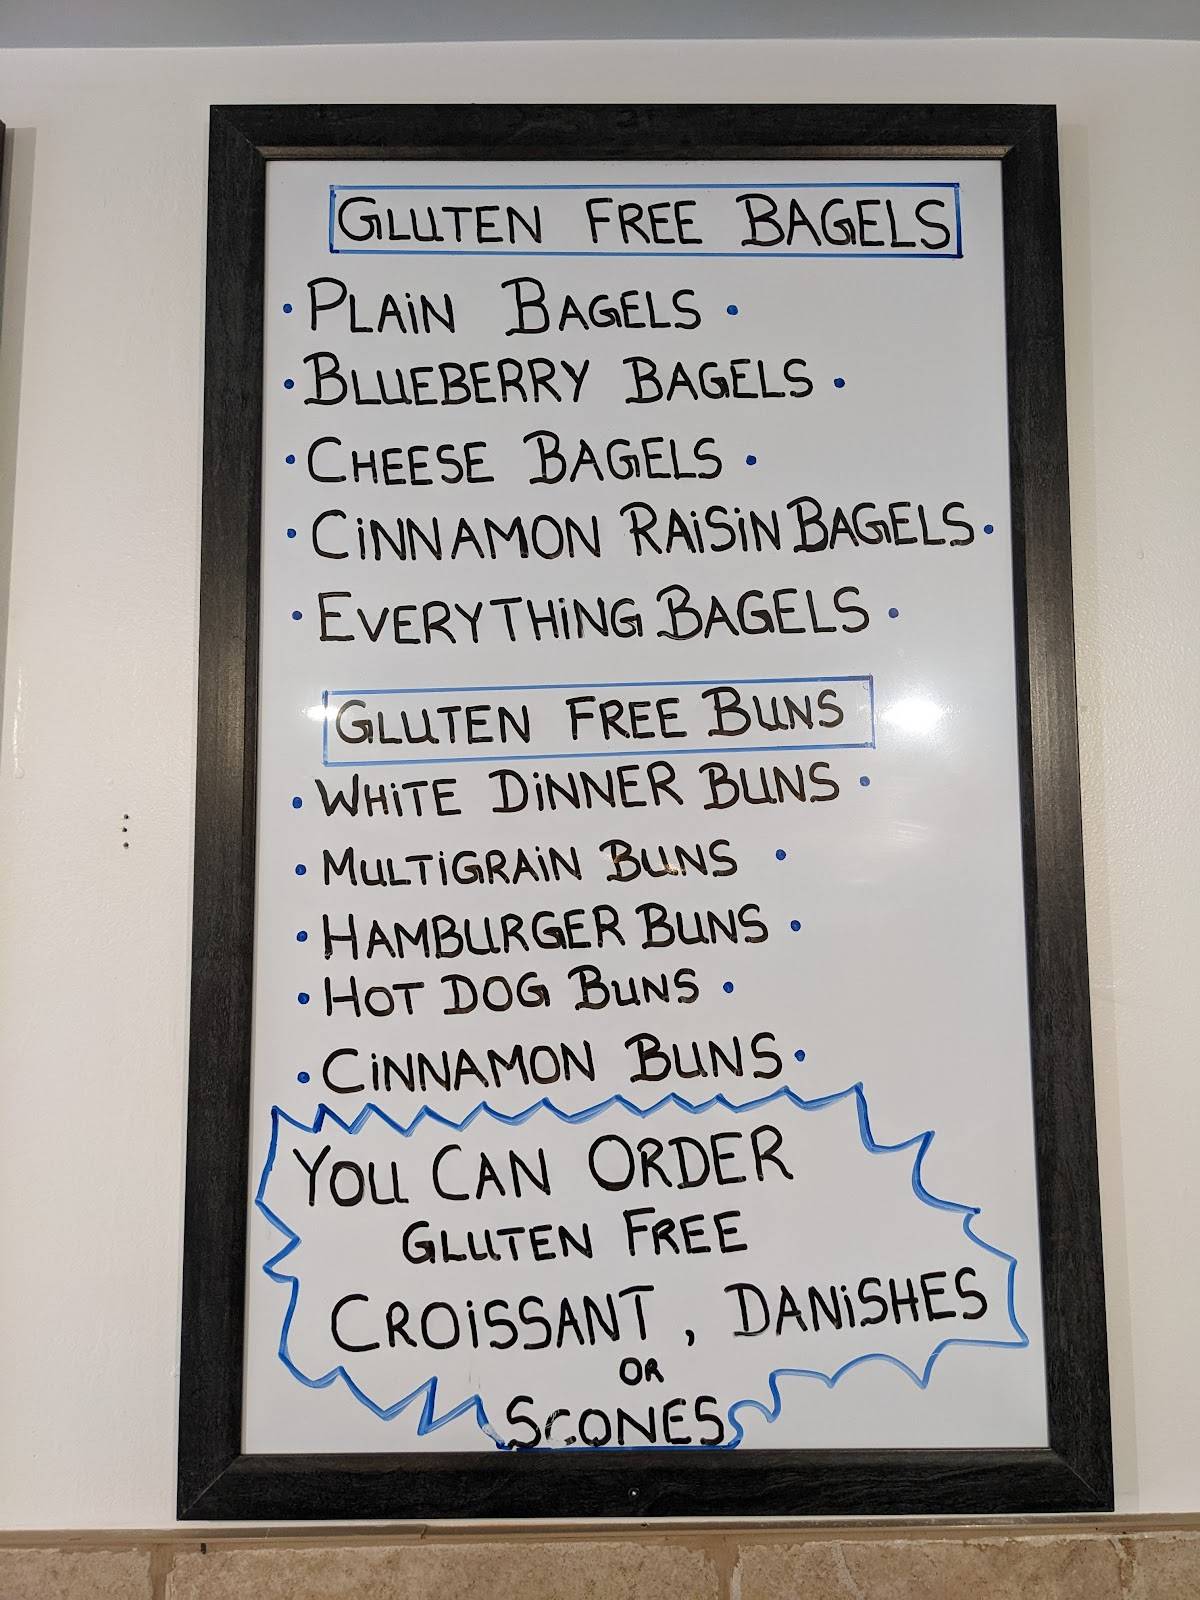 GLUTEN FREE BAGELS
• PLAiN BAGELS •
• BLUEBERRY BAGELS •
• CHEESE BAGELS •
• CiNNAMON RAiSiN BAGELS •
• EVERYTHiNG BAGELS •
GLUTEN FREE BUNS
• WHiTE DiNNER BUNS •
• MULTiGRAiN BUNS •
• HAMBURGER BUNS •
• HOT DOG BUNS •
• CiNNAMON BUNS •
YOU CAN ORDER
GLUTEN FREE
CROiSSANT , DANiSHES
OR
SCONES